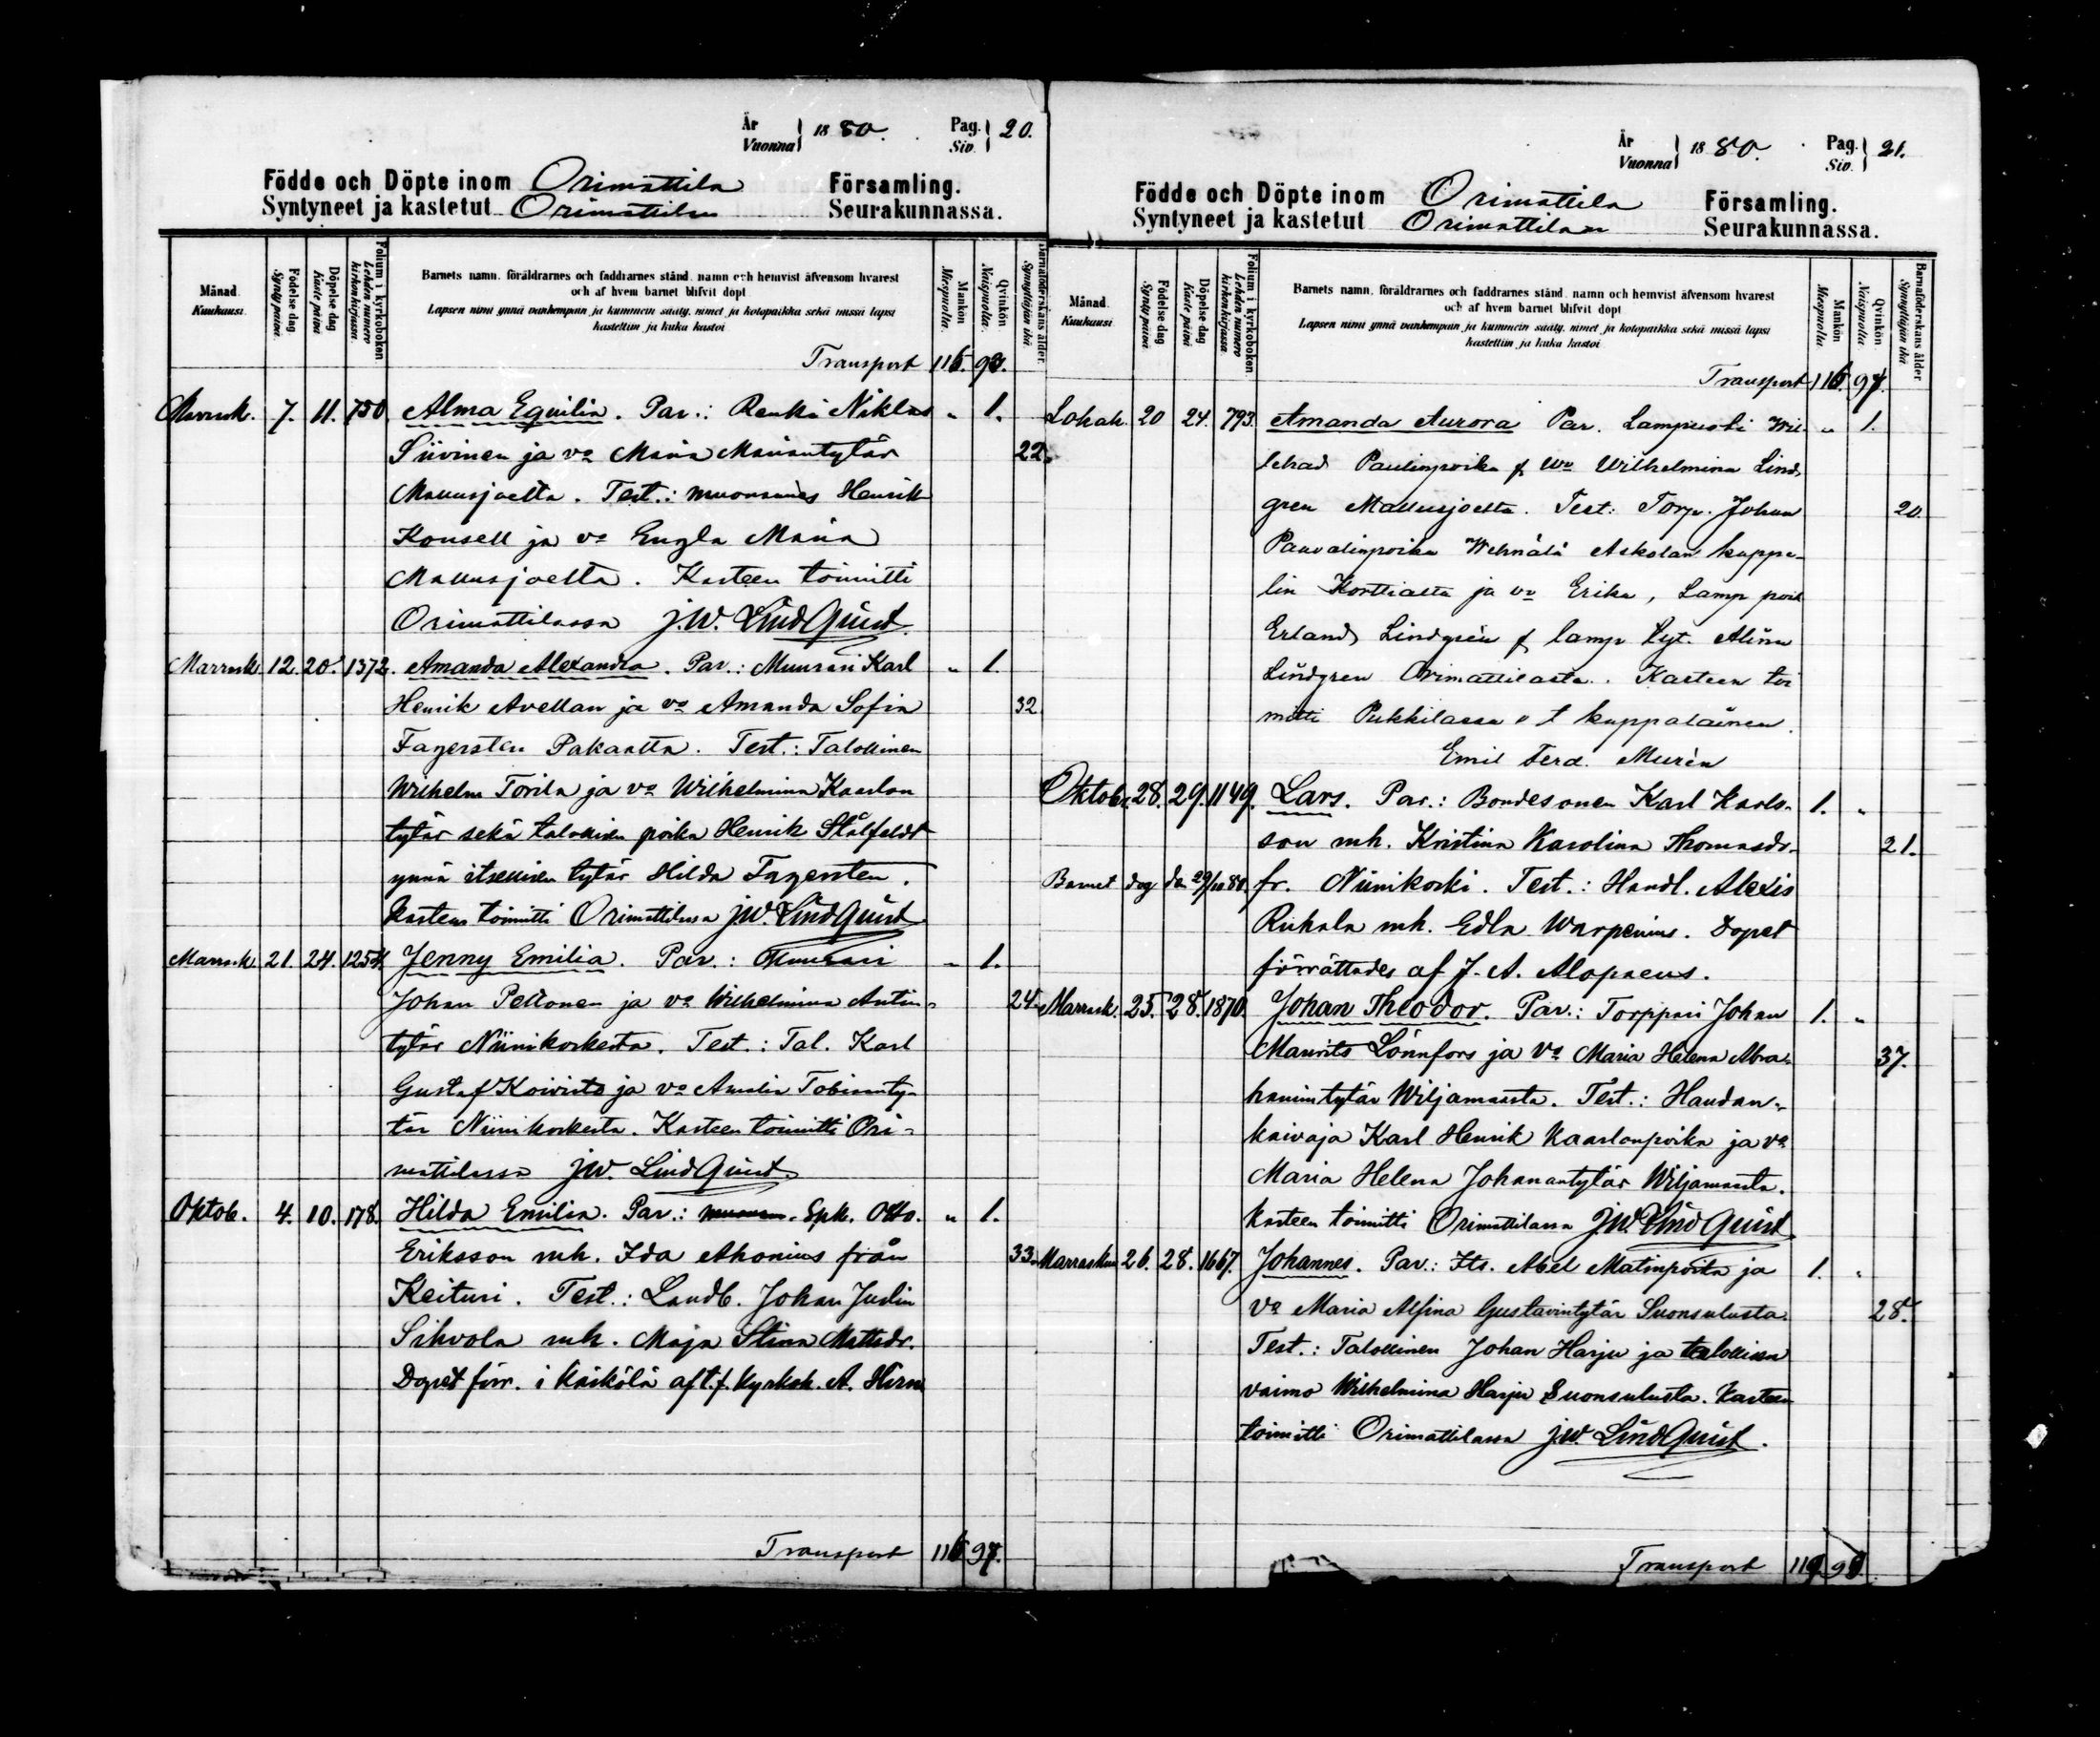 År
Vuonna } 1880. Pag.
Siv. } 20.
Födde och Döpte inom Orimattila Församling.
Syntyneet ja kastetut Orimattilan Seurakunnassa.
Månad. Kuukausi.
Födelse dag. Synty päivä.
Döpelse dag. Kaste päivä.
Folium i kyrkoboken. Lehden numero kirkonkirjassa.
Barnets namn, föräldrarnes och faddrarnes stånd, namn och hemvist äfvensom hvarest
och af hvem barnet blifvit döpt
Lapsen nimi ynnä vanhempain ja kummein sääty, nimet ja kotopaikka sekä missä lapsi
kastettiin ja kuka kastoi
Mankön Miespuolia.
Qvinkön Naispuolia.
Barnaföderskans ålder. Synnyttäjän ikä
Transport 116. 93.
Marrask. 7. 11. 750 Alma Equilin. Par.: Renki Niklas „ 1.
Siivinen ja vo Maria Mariantytär 22.
Mallusjoelta. Test.: muonamies Henrik
Konsell ja vo Engla Maria
Mallusjoelta. Kasteen toimitti
Orimattilassa J.W. LindQuist.
Marrask. 12. 20. 1372. Amanda Alexandra. Par.: Muurari Karl „ 1.
Henrik Avellan ja vo Amanda Sofia 32
Fagersten Pakaalta. Test.: Talollinen
Wilhelm Torila ja vo Wilhelmina Kaarlon
tytär sekä talollisen poika Henrik Stålfeldt
ynnä itsellisen tytär Hilda Fagersten.
Kasteen toimitti Orimattilassa J.W. LindQuist
Marrask. 21. 24. 1254. Jenny Emilia. Par.: Muurari „ 1.
Johan Peltonen ja vo Wilhelmina Antin- 24.
tytär Niinikoskesta. Test.: Tal. Karl
Gustaf Koivisto ja vo Amalia Tobiaanty-
tär Niinikoskesta. Kasteen toimitti Ori-
mattilassa J.W. LindQuist
Oktob. 4. 10. 178. Hilda Emilia. Par.: Spk. Otto. „ 1.
Eriksson mh. Ida Ahonius från 33.
Keituri. Test.: Landb. Johan Judin
Sihvola mh. Maja Stina Mattsdr.
Dopet förr. i Kärkölä af t.f. kyrkoh. A. Hirn
Transport 116 97.
År
Vuonna } 1880. Pag.
Siv. } 21.
Födde och Döpte inom Orimattila Församling.
Syntyneet ja kastetut Orimattilan Seurakunnassa.
Månad Kuukausi
Födelse dag Synty päivä
Döpelse dag Kaste päivä
Folium i kyrkoboken Lehden numero kirkonkirjassa
Barnets namn, föräldrarnes och faddrarnes stånd, namn och hemvist äfvensom hvarest
och af hvem barnet blifvit döpt
Lapsen nimi ynnä vanhempain ja kummein sääty, nimet ja kotopaikka sekä missä lapsi
kastettiin ja kuka kastoi
Mankön Miespuolia
Qvinkön Naispuolia
Barnaföderskans ålder Synnyttäjän ikä
Transport 116. 97.
Lokak. 20 24. 793. Amanda Aurora Par. Lampuoti Wil- „ 1.
lehad Paulinpoika & Wo Wilhelmina Lind-
gren Mallusjoelta. Test: Torp. Johan 20.
Paavalinpoika Wehnälä Askolan kappe-
lin Korttialta ja vo Erika, Lamp poik
Erland Lindgrén & lamp tyt. Alina
Lindgren Orimattilasta. Kasteen toi
mitti Pukkilassa v t kappalainen.
Emil Ferd. Murén
Oktober 28. 29. 1149. Lars. Par.: Bondesonen Karl Karls- 1. „
son mh. Kristina Karolina Thomasdr. 21.
Barnet dog den 29/10 80. fr. Niinikoski. Test.: Handl. Alexis
Ruhala mh. Edla Warpenius. Dopet
förrättades af J. A. Alopaeus.
Marrask. 25. 28. 1870. Johan Theodor. Par.: Torppari Johan 1. „
Maurits Lönnfors ja vo Maria Helena Abra- 37.
hamintytär Wiljamaasta. Test.: Haudan-
kaivaja Karl Henrik Kaarlonpoika ja vo
Maria Helena Johanantytär Wiljamaasta.
Kasteen toimitti Orimattilassa J.W. LindQuist
Marraskuu 26. 28. 1667. Johannes. Par.: Its. Abel Matinpoika ja 1. „
Vo Maria Alfina Gustavintytär Suonsulusta. 28.
Test.: Talollinen Johan Harju ja talollisen
vaimo Wilhelmina Harju Suonsulusta. Kasteen
toimitti Orimattilassa J.W. LindQuist.
Transport 119. 98.